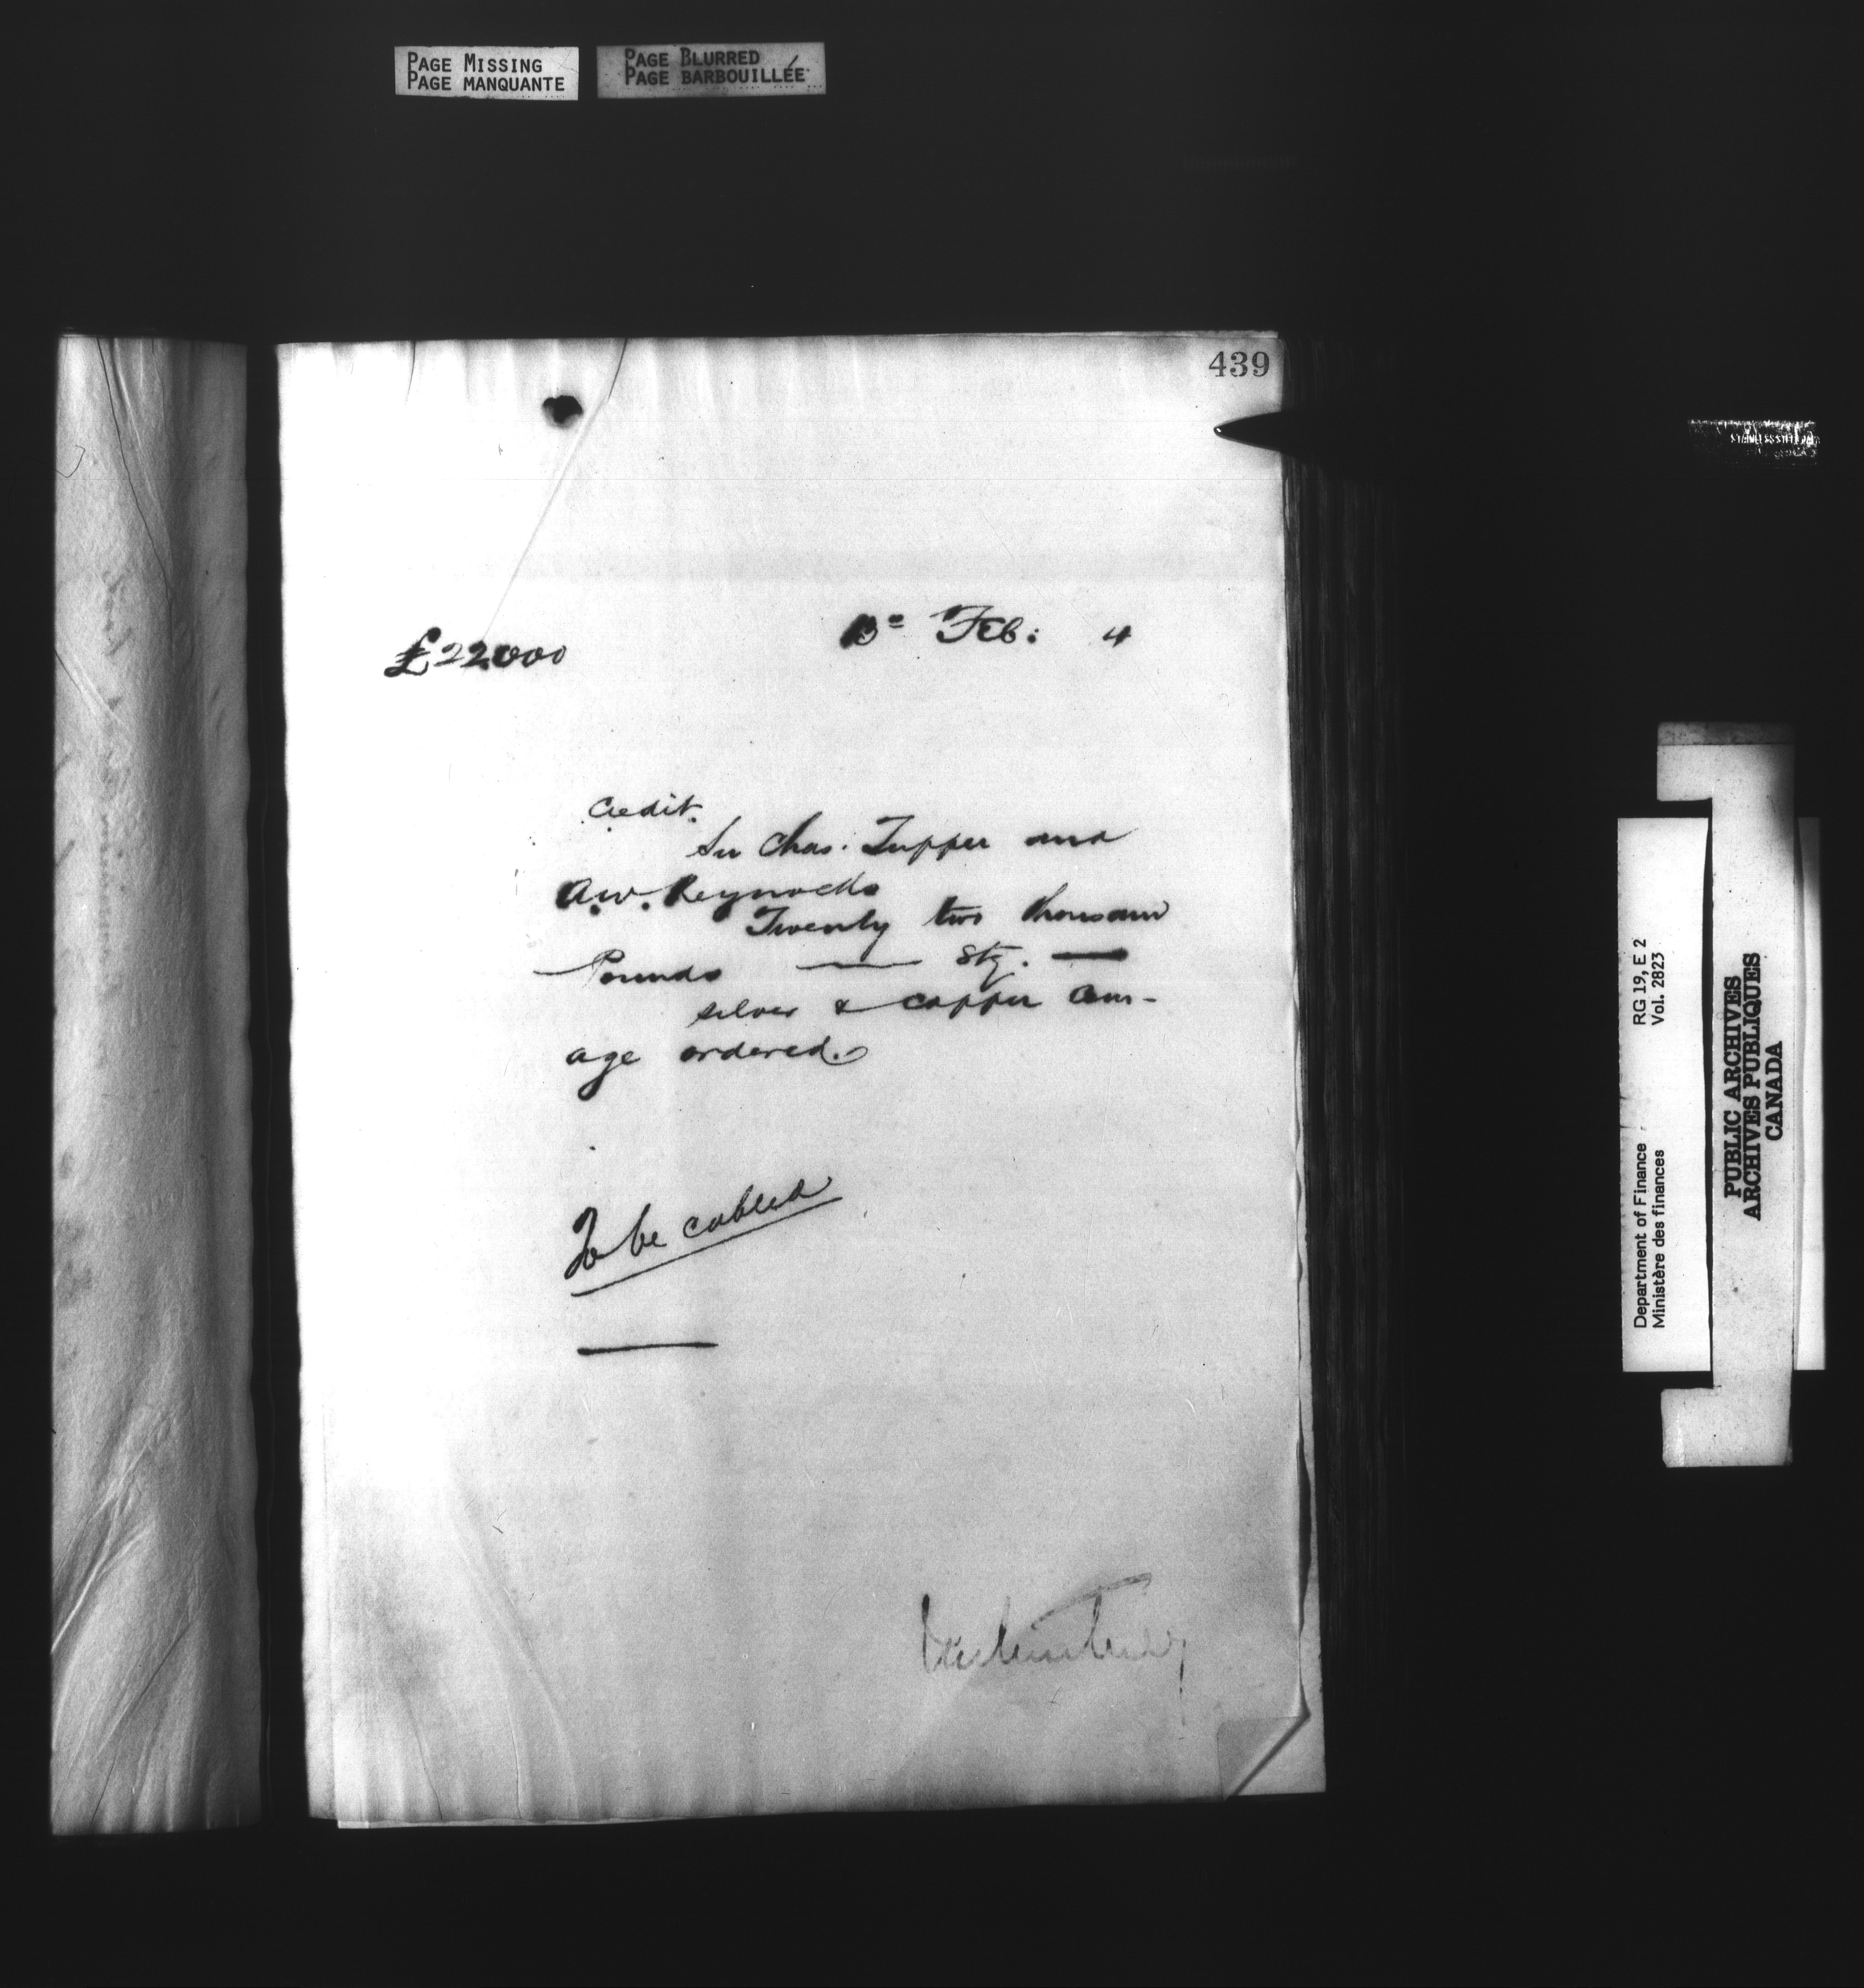 PAGE MISSING
PAGE MANQUANTE
PAGE BLURRED
PAGE BARBOUILLÉE
439
£22000
13th Feb: 4
Credit.
Sir Chas. Tupper and
A.W. Reynolds
Twenty two thousand
Pounds — Stg. —
silver & copper coin-
age ordered.
To be cabled
Department of Finance RG 19, E 2
Ministère des finances Vol. 2823
PUBLIC ARCHIVES
ARCHIVES PUBLIQUES
CANADA